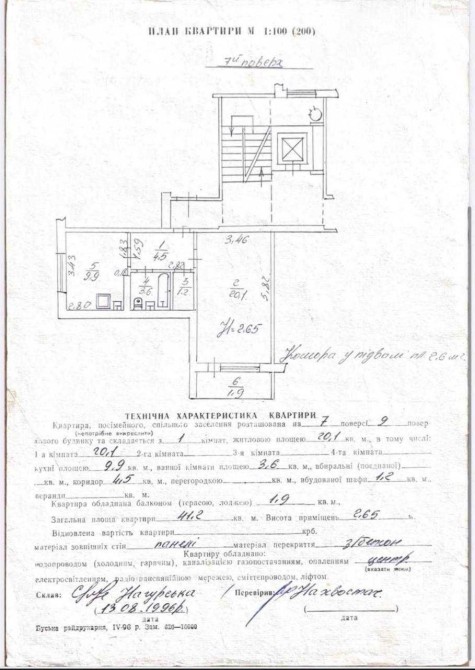 ПЛАН КВАРТИРИ М 1:100 (200)
7й поверх
3,46
1
4,5
1,59
5
9,9
3,43
4
3,6
3
1,2
2
20,1
5,82
2,80
H=2.65
Комора у підвалі пл 2.6 м².
6
1,9
ТЕХНІЧНА ХАРАКТЕРИСТИКА КВАРТИРИ
Квартира, посімейного, спільного заселення розташована на 7 поверсі 9 повер-
(непотрібне викреслити)
хового будинку та складається з 1 кімнат, житловою площею 20,1 кв. м., в тому числі:
1-а кімната 20,1 2-га кімната 3-я кімната 4-та кімната
кухні площею 9,9 кв. м., ванної кімнати площею 3,6 кв. м., вбиральні (поєднаної)
кв. м., коридор 4,5 кв. м., перегородкою кв. м., вбудованої шафи 1,2 кв. м.,
веранди кв. м.
Квартира обладнана балконом (терасою, лоджією) 1,9 кв. м.,
Загальна площа квартири 41,2 кв. м. Висота приміщень 2,65 м.
Відновлена вартість квартири крб.
матеріал зовнішніх стін панелі матеріал перекриття з/бетон
Квартиру обладнано:
водопроводом (холодним, гарячим), каналізацією газопостачанням, опаленням центр.
(вказати яким)
електроосвітленням, радіо-трансляційною мережею, сміттєпроводом, ліфтом.
Склав: Нагурська Перевірив: Нахвостач
(13.08.1996р)
дата дата
Буська райдрукарня, IV-96 р. Зам. 420—10000